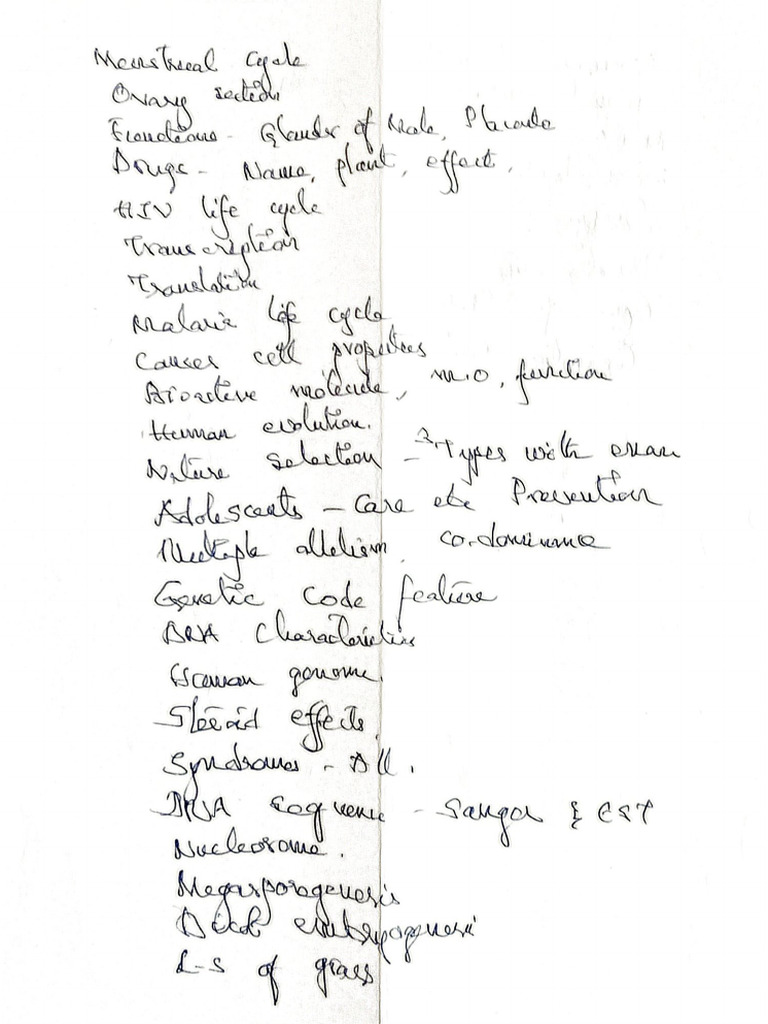 Menstrual Cycle
Ovary section
Functions - Glands of Male, Placenta
Drugs - Name, plant, effect,
HIV life cycle
Transcription
Translation
Malaria life cycle
Causes cell properties
Bioactive molecule, M.O, function
Human evolution.
Nature selection - 3 Types with exam
Adolescents - Care etc Prevention
Multiple allelism, co-dominance
Genetic Code feature
DNA Characteristics
Human genome.
Steroid effects.
Syndromes - All.
DNA Sequence - Sanger & EST
Nucleosome.
Megasporogenesis
Dicot embryogenesis
L-S of grass